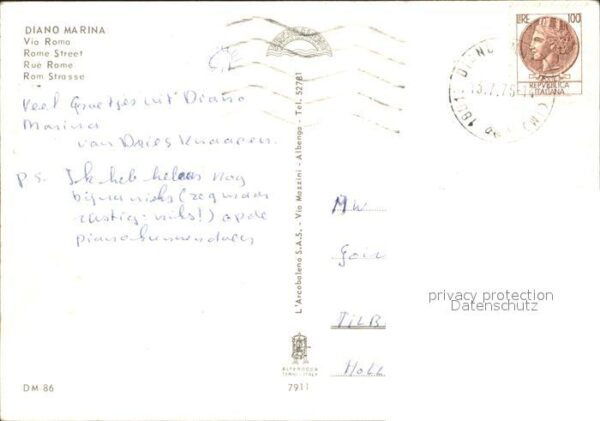 DIANO MARINA
Via Roma
Rome Street
Rue Rome
Rom Strasse
Veel Groetjes uit Diano
Marina
van Dries Knaapen.
P.S. Ik heb helaas nog
bijna niks (zeg maar
rustig: niks!) op de
piano kunnen doen
DM 86
L'Arcobaleno S.A.S. - Via Mazzini - Albenga - Tel. 52781
ALTEROCCA
TERNI - ITALY
7911
LIRE 100
REPVBBLICA
ITALIANA
13.7.76
Mw
Goir
TILB
HOLL
privacy protection
Datenschutz